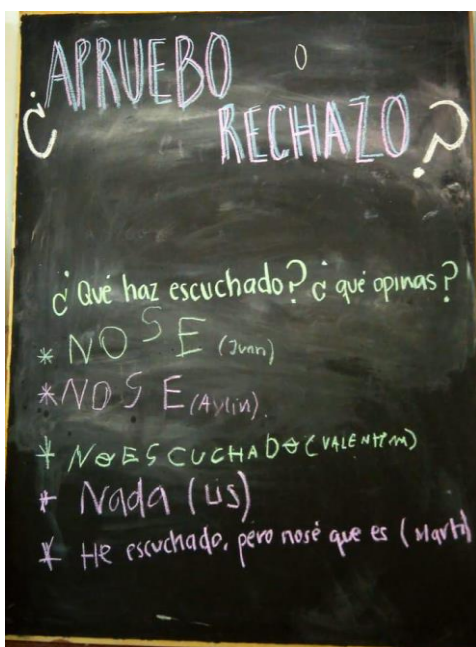 ¿APRUEBO O
RECHAZO?
¿Qué haz escuchado? ¿qué opinas?
* NO SE (Juan)
* NO SE (Aylin).
* NO ESCUCHADO (VALENTIN)
* Nada (Lis)
* He escuchado, pero nosé que es (Marti)